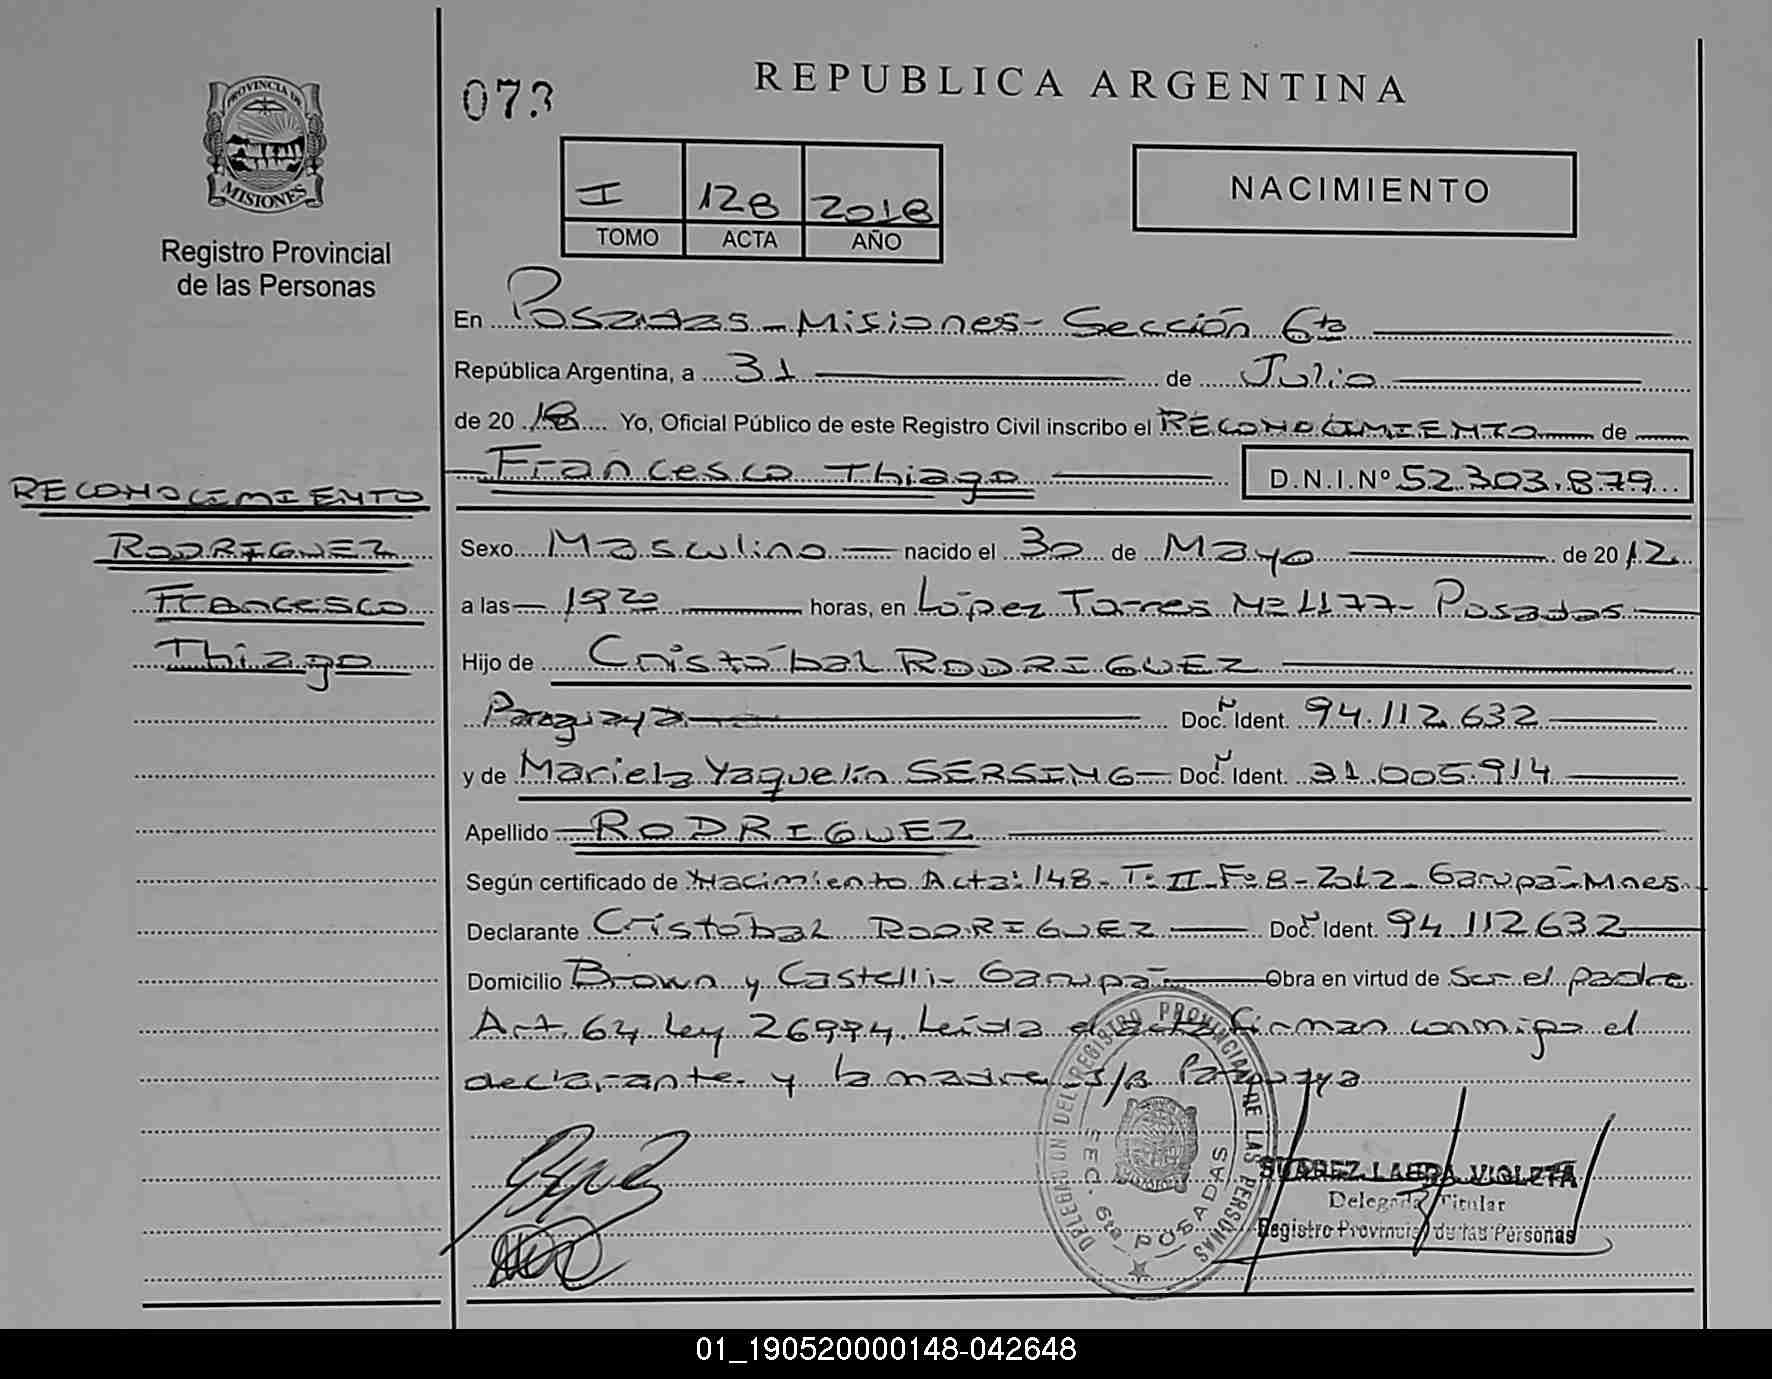 073
REPUBLICA ARGENTINA
PROVINCIA DE
MISIONES
Registro Provincial
de las Personas
I 128 2018
TOMO ACTA AÑO
NACIMIENTO
En Posadas - Misiones - Sección 6ta
República Argentina, a 31 de Julio
de 20 18 Yo, Oficial Público de este Registro Civil inscribo el RECONOCIMIENTO de
Francesco Thiago D.N.I.Nº 52.303.879
RECONOCIMIENTO
RODRIGUEZ
Francesco
Thiago
Sexo Masculino nacido el 30 de Mayo de 20 12
a las 19 20 horas, en López Torres Nº 1177 - Posadas
Hijo de Cristóbal RODRIGUEZ
Paraguaya Doc. Ident. 94.112.632
y de Mariela Yaquelín SERSING Doc. Ident. 31.005.914
Apellido RODRIGUEZ
Según certificado de Nacimiento Acta: 148 - T: II - F: 8 - 2012 - Garupá - Mnes.
Declarante Cristóbal RODRIGUEZ Doc. Ident. 94.112.632
Domicilio Brown y Castelli - Garupá Obra en virtud de Ser el padre
Art. 64 Ley 26994. Leída el acta firman conmigo el
declarante y la madre s/B Paraguaya
DELEGACION DEL REGISTRO PROVINCIAL DE LAS PERSONAS
SEC. 6ta POSADAS
SUAREZ LAURA VIOLETA
Delegada Titular
Registro Provincial de las Personas
01_190520000148-042648